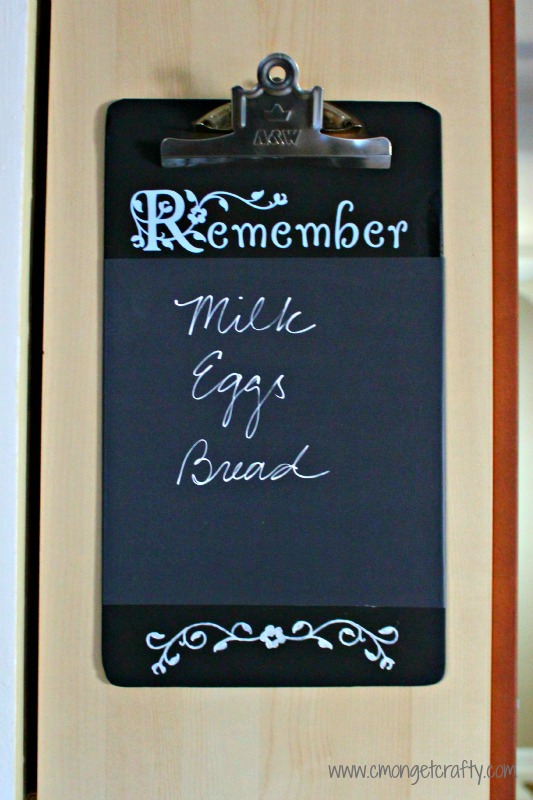 ARW
Remember
Milk
Eggs
Bread
www.cmongetcrafty.com